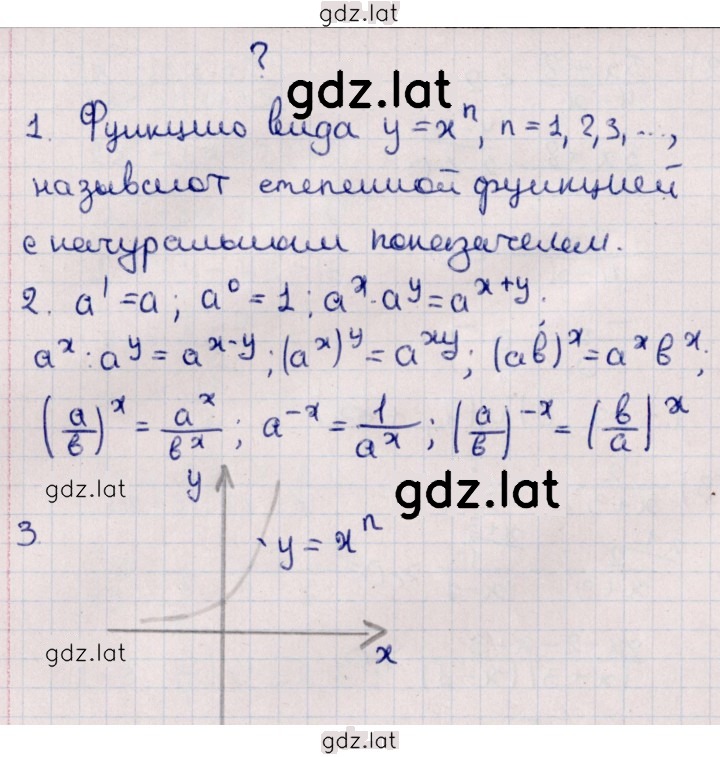 gdz.lat
?
gdz.lat
1. Функцию вида y = xⁿ, n = 1, 2, 3, ...,
называют степенной функцией
с натуральным показателем.
2. a¹ = a; a⁰ = 1; aˣ · aʸ = aˣ⁺ʸ;
aˣ : aʸ = aˣ⁻ʸ; (aˣ)ʸ = aˣʸ; (aв)ˣ = aˣвˣ;
(a/в)ˣ = aˣ/вˣ; a⁻ˣ = 1/aˣ; (a/в)⁻ˣ = (в/a)ˣ
gdz.lat y gdz.lat
3. y = xⁿ
gdz.lat x
gdz.lat